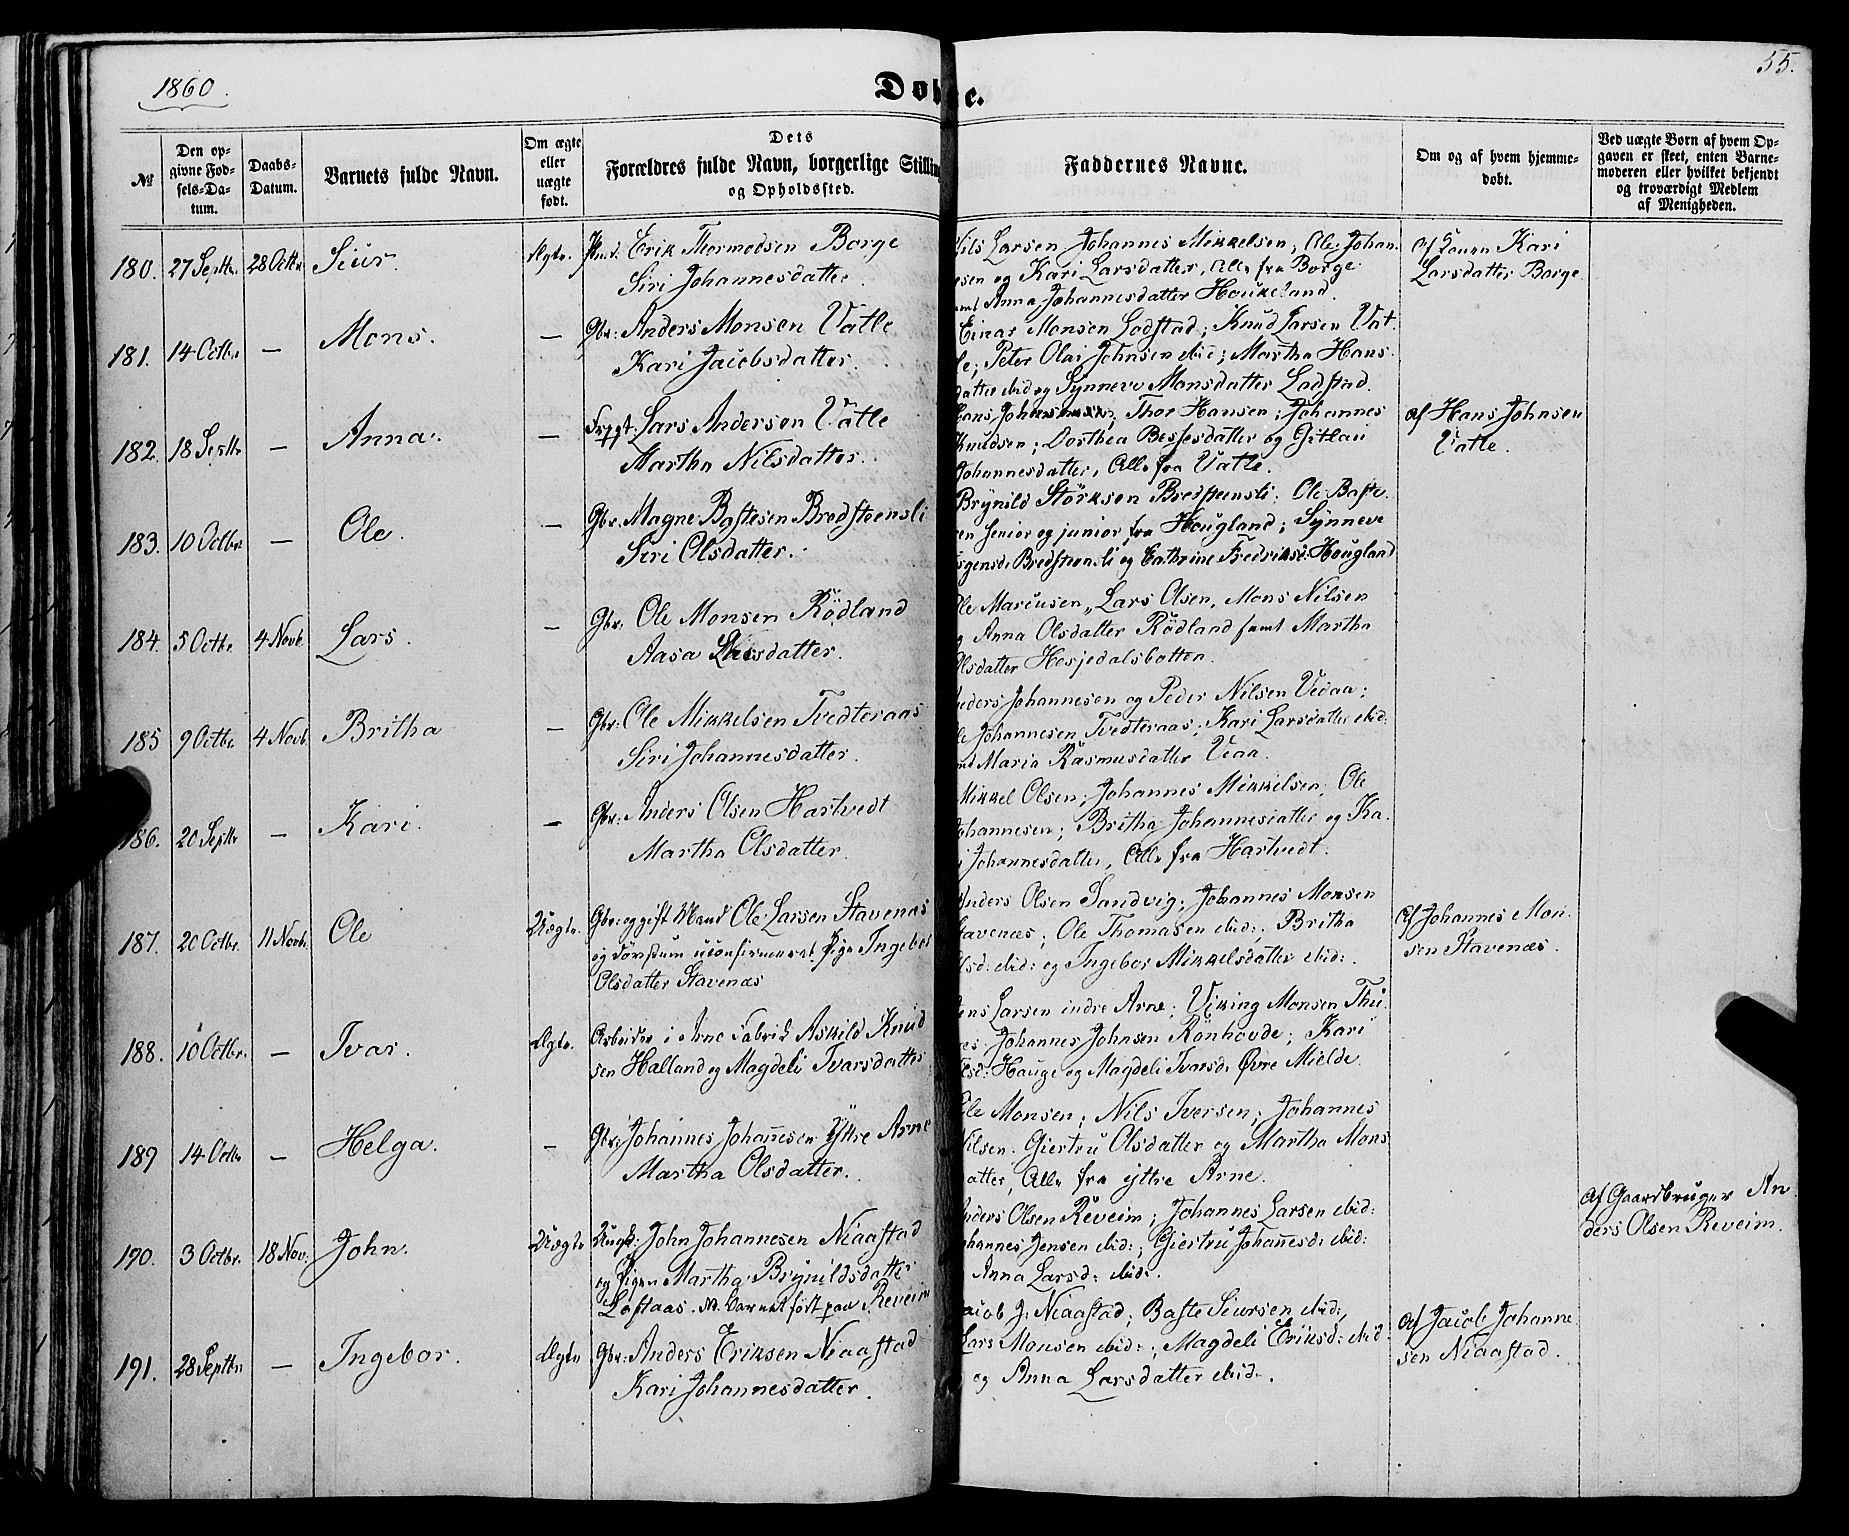 1860.
Døbte.
55.
No
Den opgivne Fødsels-Datum.
Daabs-Datum.
Barnets fulde Navn.
Om ægte eller uægte født.
Dets Forældres fulde Navn, borgerlige Stilling og Opholdssted.
Faddernes Navne.
Om og af hvem hjemmedøbt.
Ved uægte Børn af hvem Opgaven er skeet, enten Barnemoderen eller hvilket bekjendt og troværdigt Medlem af Menigheden.
180. 27 Septbr. 28 Octbr. Siur. Ægte. Erik Thormodsen Borge
Siri Johannesdatter
Nils Larsen, Johannes Mikkelsen, Ole Johan-
sen og Kari Larsdatter, Alle fra Borge
samt Anna Johannesdatter Houkeland.
Af Kari
Larsdatter Borge
181. 14 Octbr — Mons. — Gbr: Anders Monsen Vatle
Kari Jacobsdatter.
Einar Monsen Lodstad; Knud Larsen Vat-
le; Peter Olai Johnsen ibid; Martha Hans-
datter ibid og Synneve Monsdatter Lodstad.
182. 18 Septbr — Anna. — Lars Andersen Vatle
Martha Nilsdatter.
Hans Johnsen, Thor Hansen; Johannes
Knudsen; Dorthea Bessesdatter og Gitlau
Johannesdatter, Alle fra Vatle.
af Hans Johnsen
Vatle.
183. 10 Octbr — Ole. — Gbr. Magne Bastesen Bredsteensli
Siri Olsdatter.
Brynild Störksen Bredsteensli. Ole Baste-
sen senior og junior fra Hougland; Synneve
Bredsteensli og Cathrine Fredriksd: Hougland
184. 5 Octbr. 4 Novb. Lars. — Gbr: Ole Monsen Rödland
Aasa Larsdatter.
Ole Marcusen, Lars Olsen, Mons Nilsen
og Anna Olsdatter Rödland samt Martha
Olsdatter Hesjedalsbotten.
185 9 Octbr. 4 Novb. Britha — Gbr: Ole Mikkelsen Tvedteraas
Siri Johannesdatter.
Anders Johannesen og Peder Nilsen Vedaa;
Ole Johannesen Tvedteraas; Kari Larsdatter ibid:
samt Maria Rasmusdatter Vedaa.
186. 20 Septbr — Kari. — Gbr: Anders Olsen Hartvedt
Martha Olsdatter.
Mikkel Olsen; Johannes Mikkelsen; Ole
Johannesen; Britha Johannesdatter og Ka-
ri Johannesdatter, Alle fra Hartvedt.
187. 20 Octbr. 11 Novb. Ole Uægte. Gbr: og gift Mand Ole Larsen Stavenæs
og uconfirmeret Pige Ingebor
Olsdatter Stavenæs
Anders Olsen Sandvig; Johannes Monsen
Stavenæs; Ole Thomasen ibid:; Britha
Olsd: ibid: og Ingebor Mikkelsdatter ibid:.
Af Johannes Mon-
sen Stavenæs.
188. 10 Octbr. — Ivar. Ægte. Arbeider i Arne Fabrik Askild Knud
sen Halland og Magdeli Ivarsdatter
Jens Larsen indre Arne; Viking Monsen Thu-
nes. Johannes Johnsen Rönhovde; Kari
Olsd: Hauge og Magdeli Ivarsd. Øvre Mielde.
189 14 Octbr — Helga. — Gbr: Johannes Johannesen Yttre Arne
Martha Olsdatter.
Ole Monsen; Nils Iversen; Johannes
Nilsen. Giertru Olsdatter og Martha Mons
datter, Alle fra yttre Arne.
190. 3 Octbr. 18 Nov. John. Uægte Ungk: John Johannesen Niaastad
og Pigen Martha Brynildsdatter
Loftaas. NB. Barnet født paa Reveim
Anders Olsen Reveim; Johannes Larsen ibid:
Johannes Jensen ibid:; Giertru Johannesd: ibid:
Anna Larsd: ibid:.
Af Gaardbruger An-
ders Olsen Reveim.
191. 28 Septbr — Ingebor. Ægte Gbr: Anders Eriksen Niaastad
Kari Johannesdatter.
Jacob J: Niaastad; Baste Siursen ibid:,
Lars Monsen ibid:; Magdeli Eriksd: ibid:
og Anna Larsdatter ibid:.
Af Jacob Johanne
sen Niaastad.